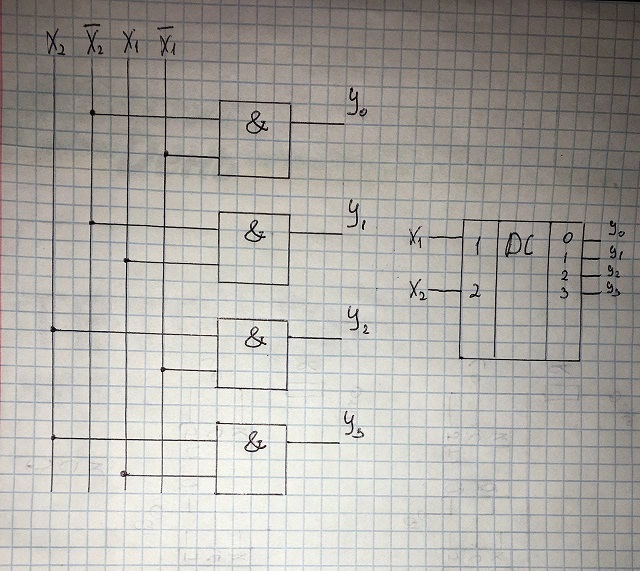 X₂ X̅₂ X₁ X̅₁
& y₀
& y₁
& y₂
& y₃
X₁ 1 DC 0 y₀
1 y₁
2 y₂
X₂ 2 3 y₃